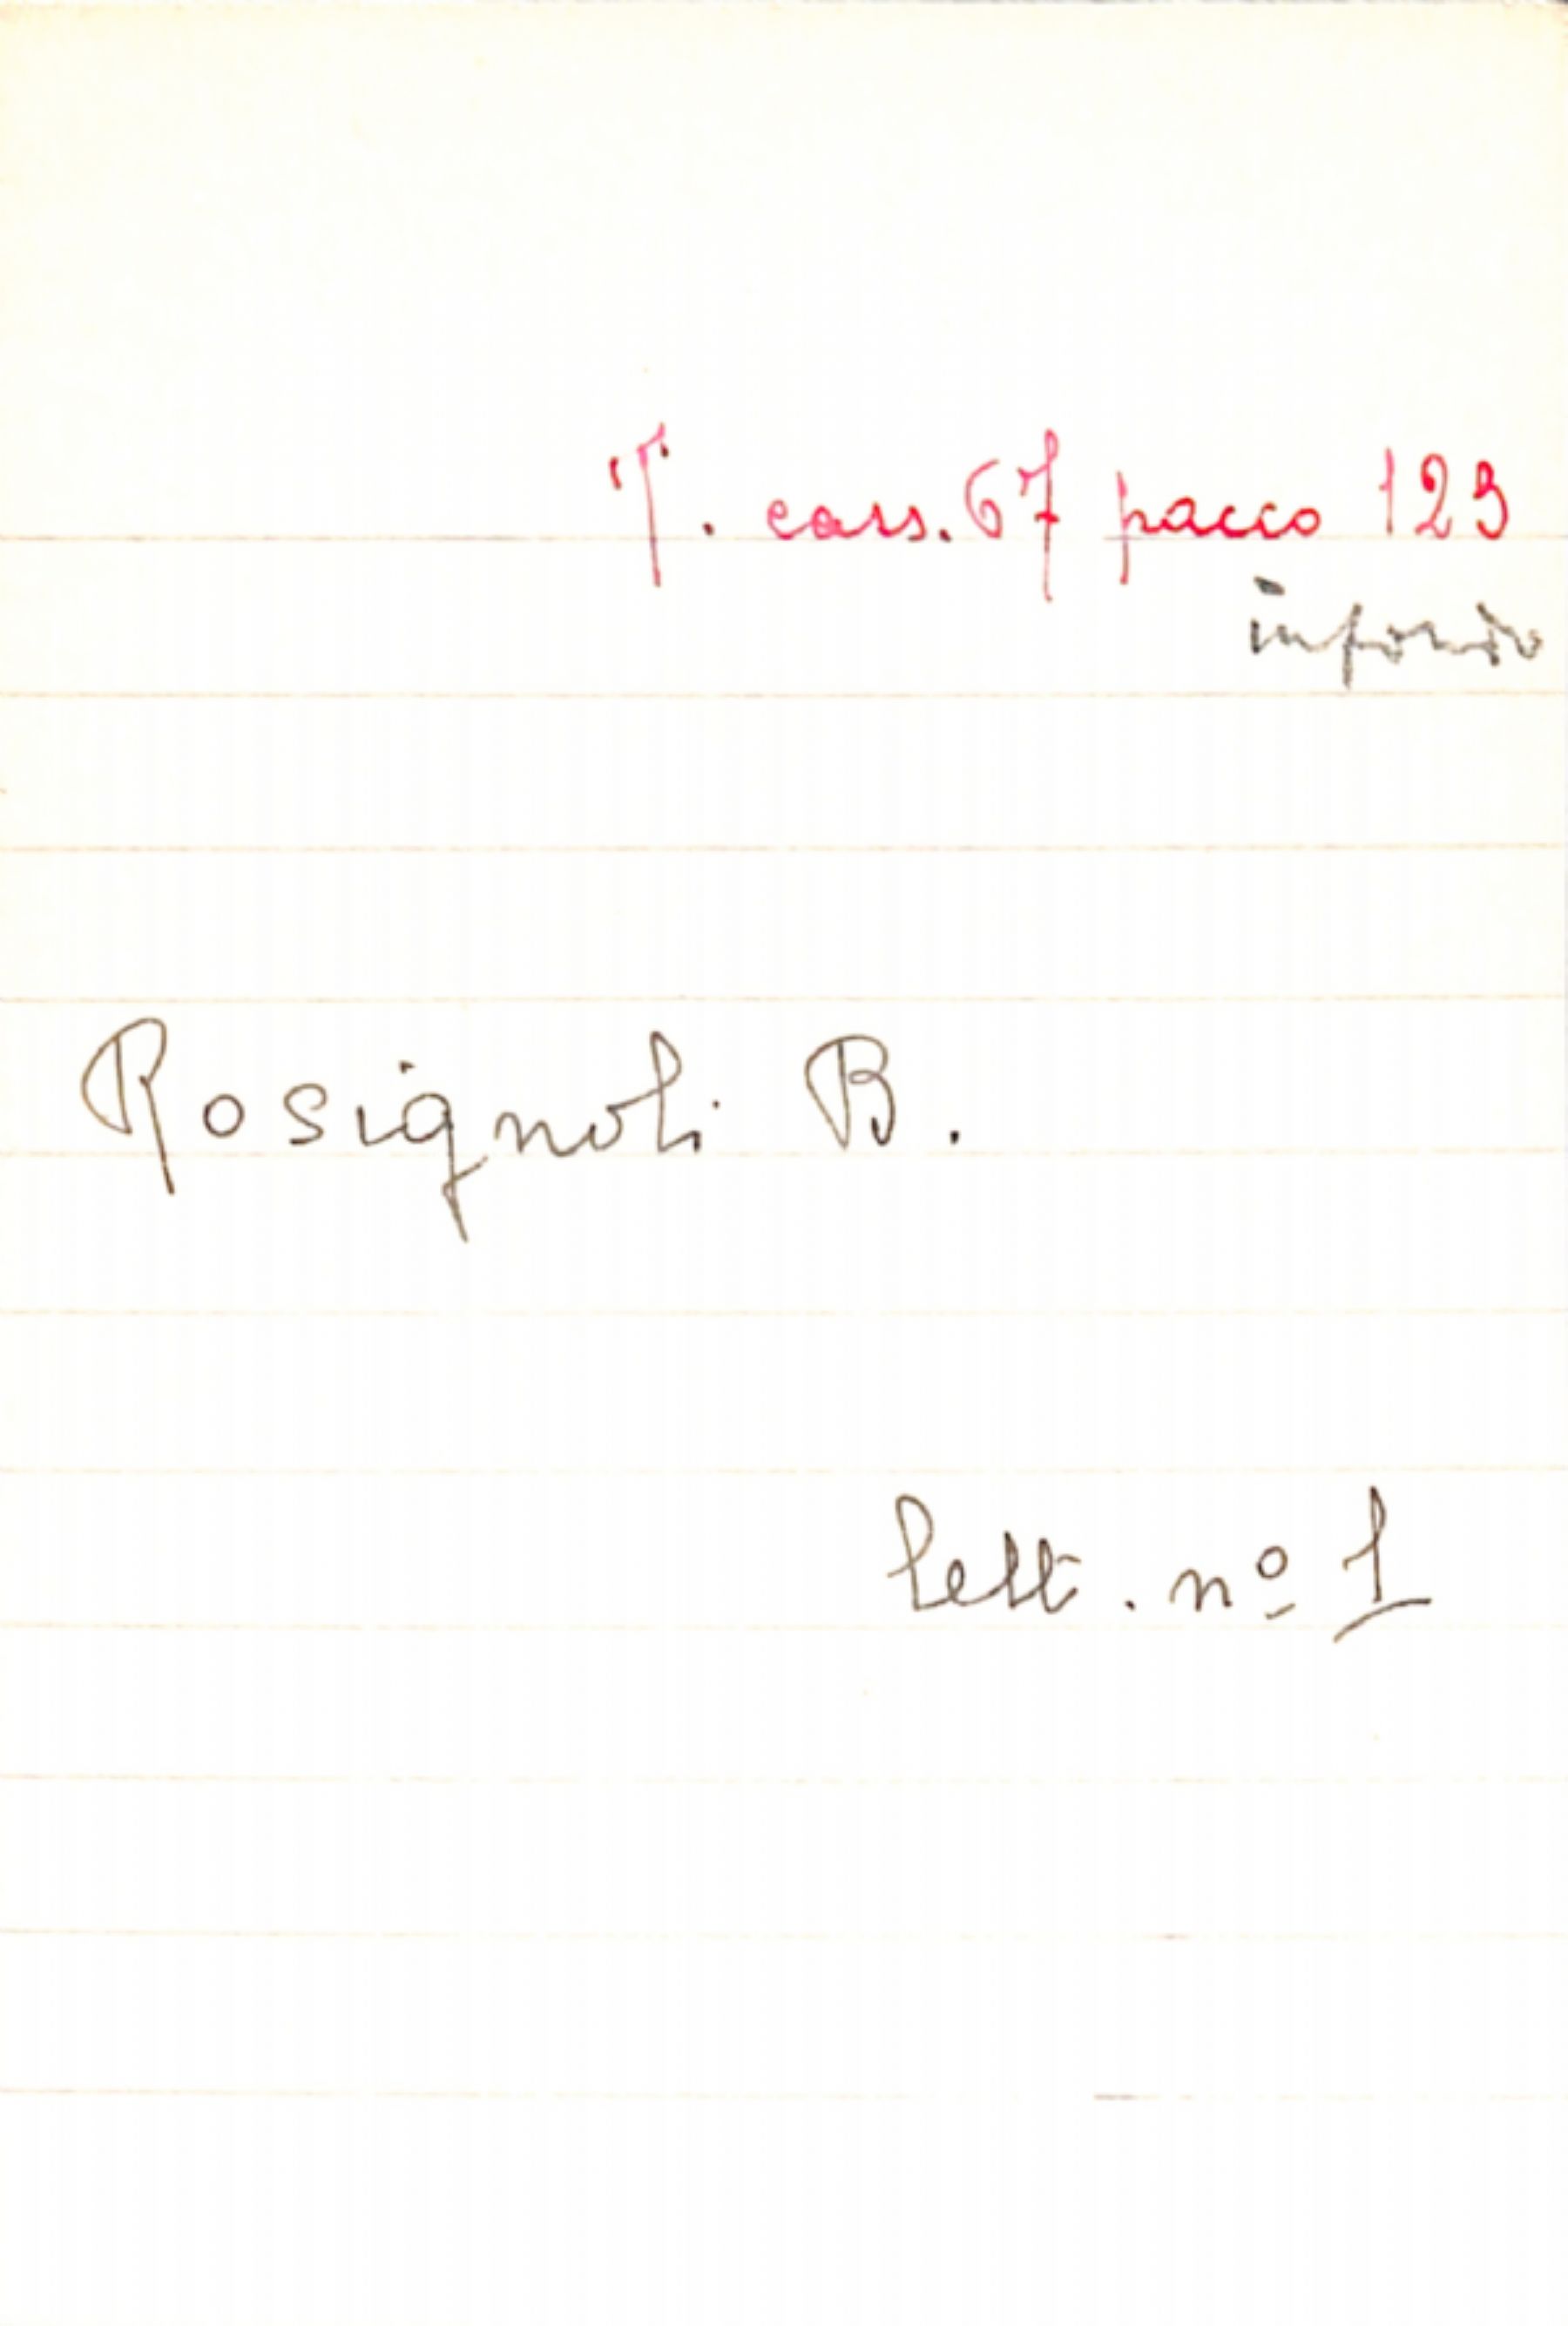 T. cass. 67 pacco 123
in fondo
Rosignoli B.
lett. nº 1